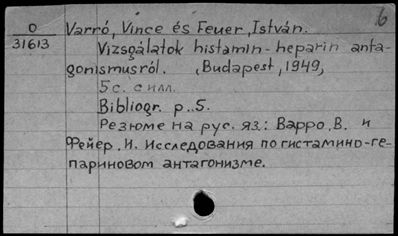 6
O Varró, Vince és Feuer, István.
31613 Vizsgálatok histamin-heparin anta-
gonismusról. Budapest, 1949,
5 с. с илл.
Bibliogr. p. 5.
Резюме на рус. яз.: Варро, В. и
Фейер, И. Исследования по гистамино-ге-
париновом антагонизме.